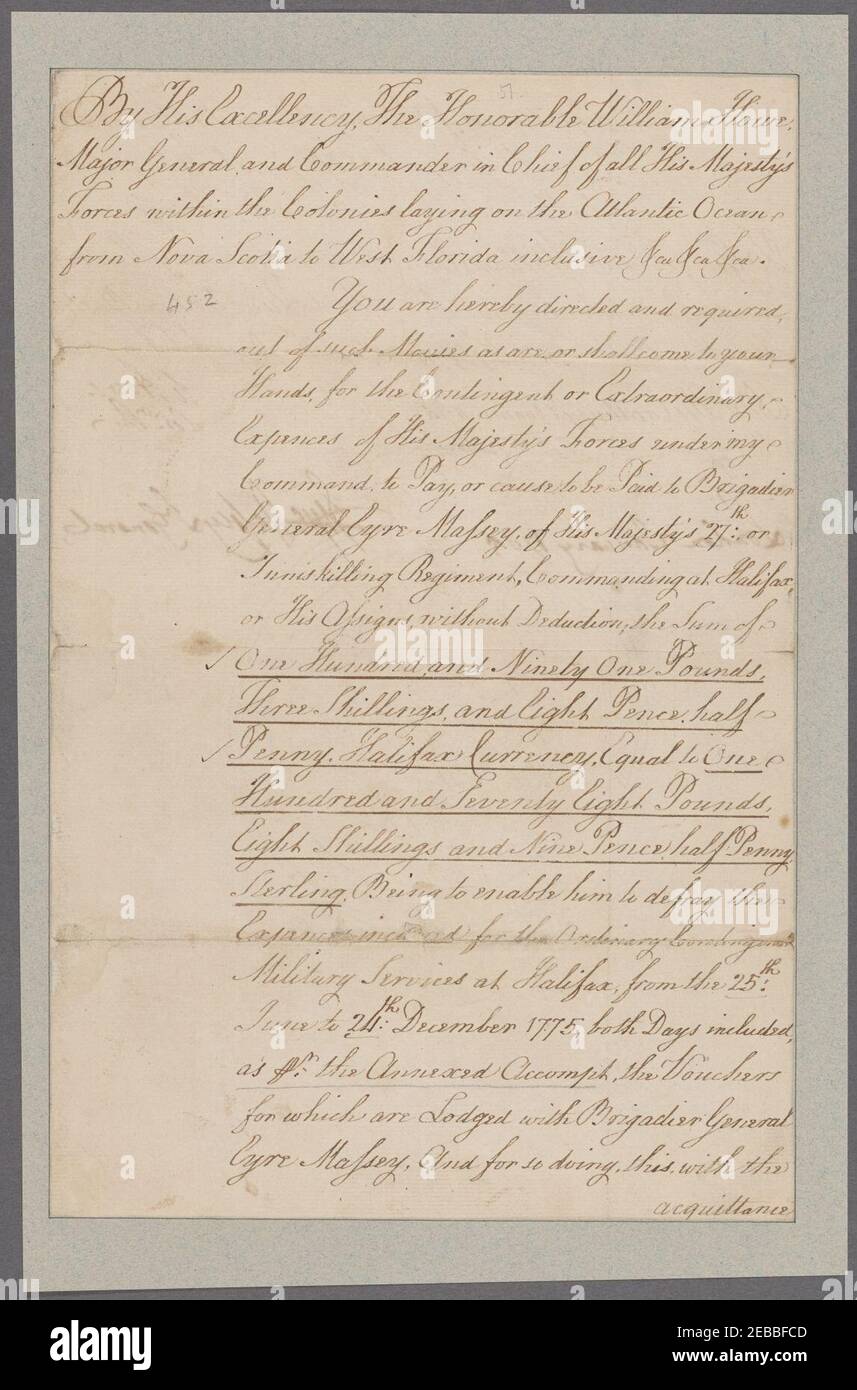 51
By His Excellency, The Honorable William Howe,
Major General, and Commander in Chief of all His Majesty's
Forces within the Colonies laying on the Atlantic Ocean
from Nova Scotia to West Florida inclusive &ca &ca &ca.
452
You are hereby directed and required,
out of such Monies as are, or shall come to your
Hands, for the Contingent or Extraordinary
Expences of His Majesty's Forces under my
Command, to Pay, or cause to be Paid to Brigadier
General Eyre Massey, of His Majesty's 27th: or
Inniskilling Regiment, Commanding at Halifax,
or His Assigns, without Deduction, the Sum of
One Hundred, and Ninety One Pounds,
Three Shillings, and Eight Pence, half
Penny, Halifax Currency, Equal to One
Hundred and Seventy Eight Pounds,
Eight Shillings and Nine Pence, half Penny
Sterling, Being to enable him to defray, the
Expences incurred for the Ordinary Contingent
Military Services at Halifax, from the 25th:
June to 24th: December 1775, both Days included,
as pr. the Annexed Accompt, the Vouchers
for which are Lodged with Brigadier General
Eyre Massey, And for so doing, this, with the
acquittance
alamy
Image ID: 2EBBFCD
www.alamy.com